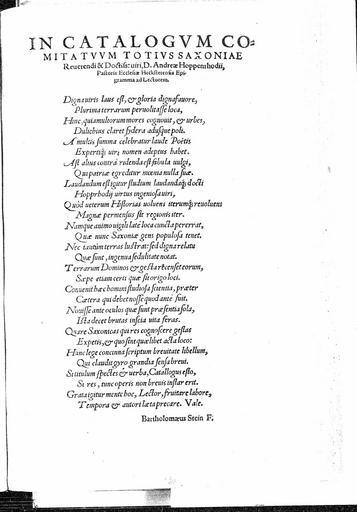 IN CATALOGVM CO-
MITATVVM TOTIVS SAXONIAE
Reuerendi & Doctiss: uiri, D. Andreæ Hoppenrhodii,
Pastoris Ecclesiæ Heckstetensis Epi-
gramma ad Lectorem.
Digna uiris laus est, & gloria digna fauore,
Plurima terrarum peruolitasse loca,
Hinc, quia multorum mores cognouit, & urbes,
Dulichius claret sydera adusque poli.
A multis summa celebratur laude Poëtis
Expertiq; uiri nomen adeptus habet.
Ast alius contrà ridenda est fabula uulgi,
Qui patriæ egreditur mœnia nulla suæ.
Laudandum est igitur studium laudandaq; docti
Hopprhodij uirtus ingeniosa uiri,
Quòd ueterum Historias uoluens iterumq; reuoluens
Magnæ permensus sit regionis iter.
Namque animo uigili latè loca cuncta pererrat,
Quæ nunc Saxoniæ gens populosa tenet.
Nec tantùm terras lustrat: sed digna relatu
Quæ sunt, ingenua sedulitate notat.
Terrarum Dominos & gesta recenset eorum,
Sæpe etiam certis quæ sit origo loci.
Conuenit hæc hominis studiosa scientia, præter
Cætera qui debet nosse quod antè fuit.
Nouisse ante oculos quæ sunt præsentia sola,
Ista decet brutas inscia uita feras.
Quare Saxonicas qui res cognoscere gestas
Expetis, & quo sint quælibet acta loco:
Hunc lege concinnè scriptum breuitate libellum,
Qui claudit gyro grandia sensa breui.
Si titulum spectes & uerba, Catalogus esto,
Si res, tunc operis non breuis instar erit.
Grata igitur mente hoc, Lector, fruitare labore,
Tempora & autori læta precare. Vale.
Bartholomæus Stein F.